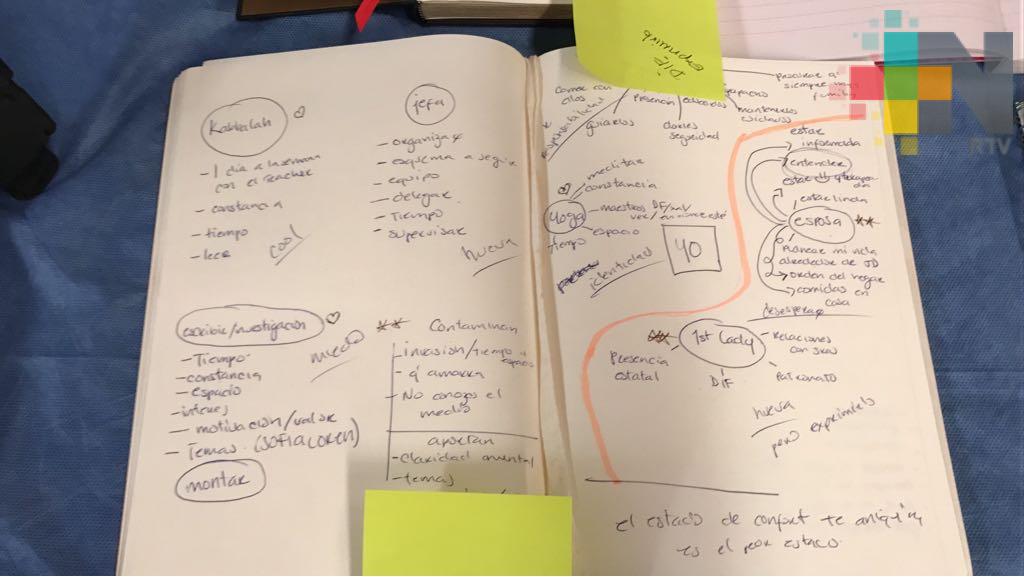 Kabbalah
- 1 día a la semana
con el teacher
- constancia
- tiempo
- leer
cool
jefa
- organizar
- esquema a seguir
- equipo
- delegar
- Tiempo
- supervisar
hueva
escribir/investigación
- Tiempo
- constancia
- espacio
- interes
- motivación/valor
- Temas. (SOFIA COREN)
montar
miedo
** Contaminan
- invasión/tiempo espacio
- q' amarra
- No conozco el
medio
aportan
- claridad mental
- temas
DIF
exprimirlo
comer con
ellos
guiarlos
presencia
educarlos
darles
seguridad
mantenerlos
procurar a
siempre
familia
meditar
constancia
Yoga
maestros DF/
espacio
tiempo
identidad
YO
estar
informada
entender
estar
estar linda
esposa **
Planear mi vida
alrededor de JD
orden del hogar
comidas en
casa
desespera
1st Lady
Presencia
estatal
DIF
relaciones
con
Patronato
hueva
pero exprimirlo
el estado de confort te aniquila,
es el peor estado.
RTV